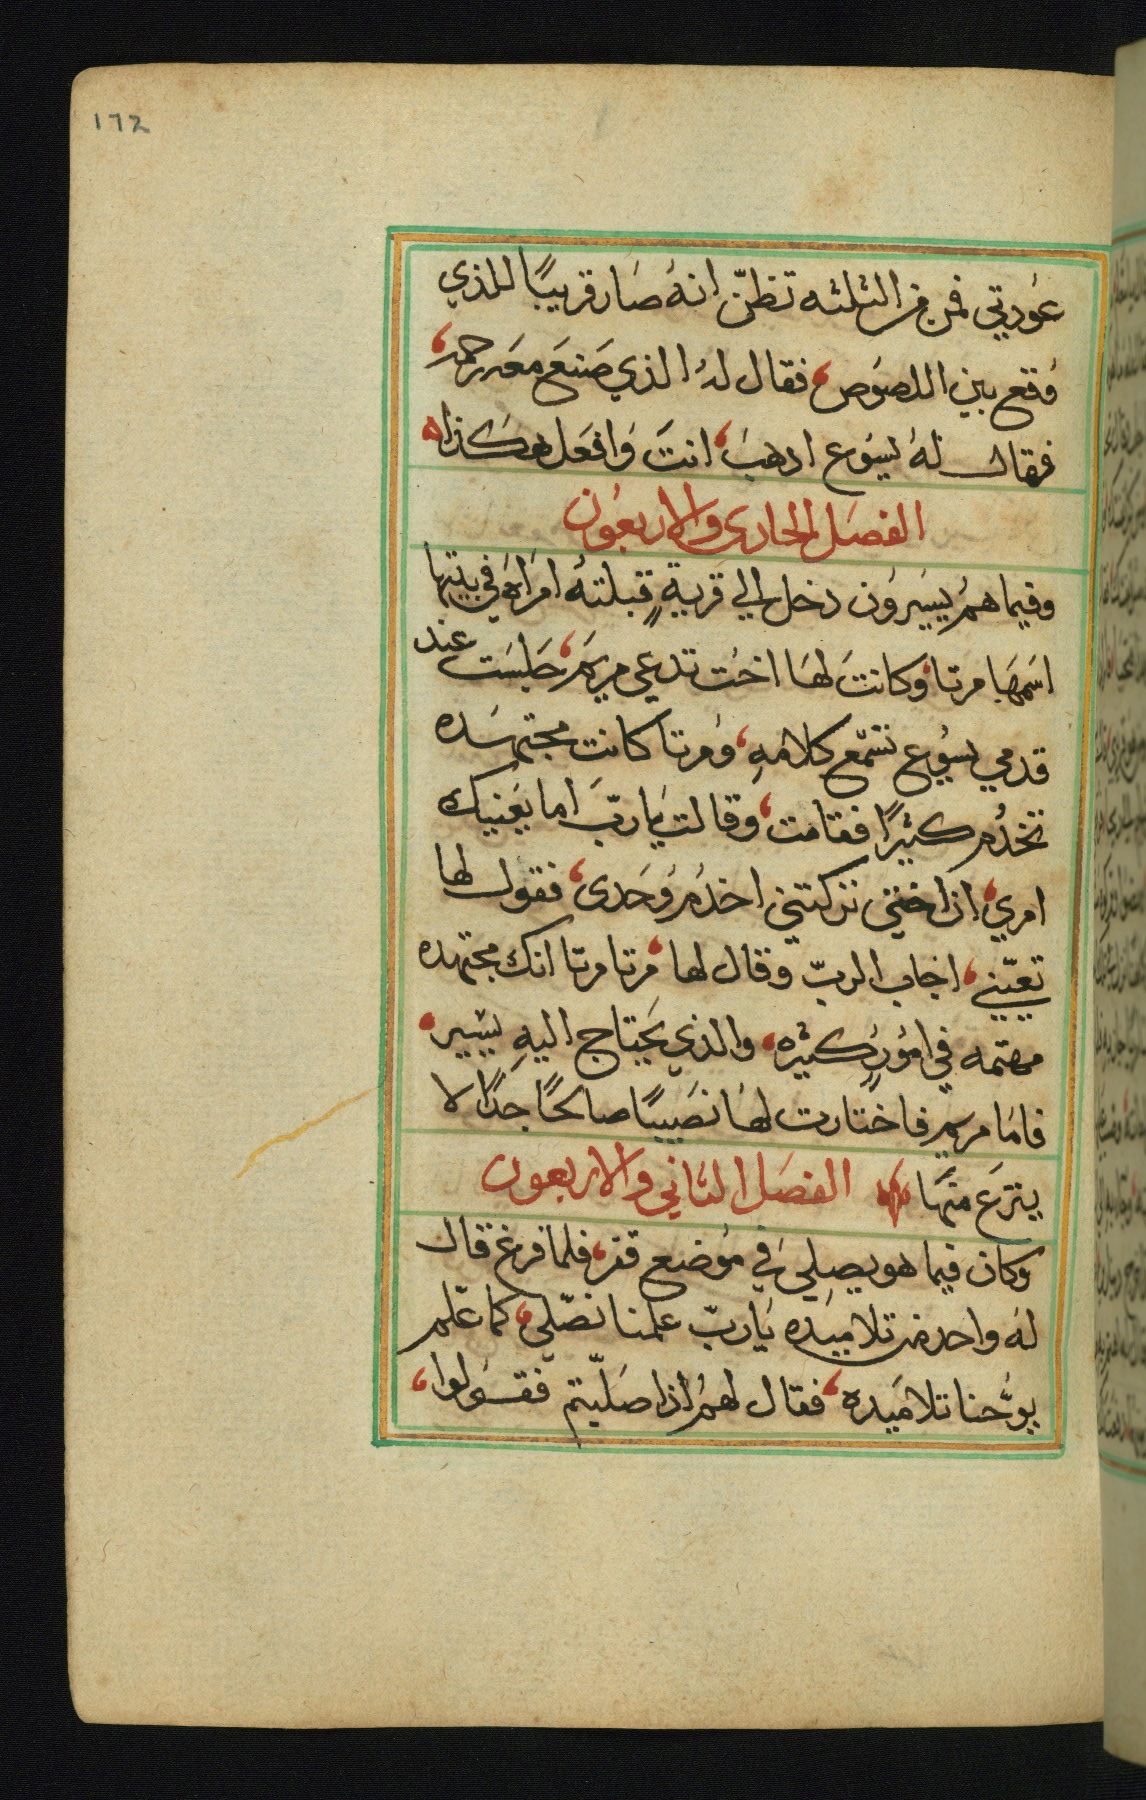 ١٦٢
عودتي فمن من الثلثه تظنّ انهُ صَار قريبًا للذي
وُقع بين اللصوص، فقال لهُ الذي صَنعَ معَه رحمه،
فقال لهُ يسوع ادهبْ، انتَ وَافعَل هكذا
الفصَل الحادى والاربعُون
وفيما همُ يسيَرون دخل الي قريةٍ قبلتهُ امرَاهَ في بيتها
اسَمهَا مرتا، وكانتَ لهَا اخُت تدعي مريَمَ، جَلسَت عند
قدمي يسُوع تسَمّع كلامهِ، ومرتا كانت مجتهَده
تخدُم كثيرًا فقامت، وقالت يَاربّ اما يَعنيك
امري، ان اختي تركتني اخدُم وَحَدى، فقول لها
تعيّنني، اجاب الربّ وقال لها، مرتا مرتا انك مجتهده
مهتمه في امُورٍ كثيره، والذي يَحتاج اليهِ يسَير،
فامَا مريم فاختارت لهَا نصَيبًا صالحًا جَدًا لا
ينترَع منهَا الفصَل الثاني والاربعون
وكان فيما هو يصِليَ في مَوُضع قفر، فلما فرغ قال
لهَ واحد من تلاميَده يَاربّ علمنا نصّلي، كما علّم
يوُحنا تلامَيده، فقال لهمُ اذا صَليّتم فقولوا،